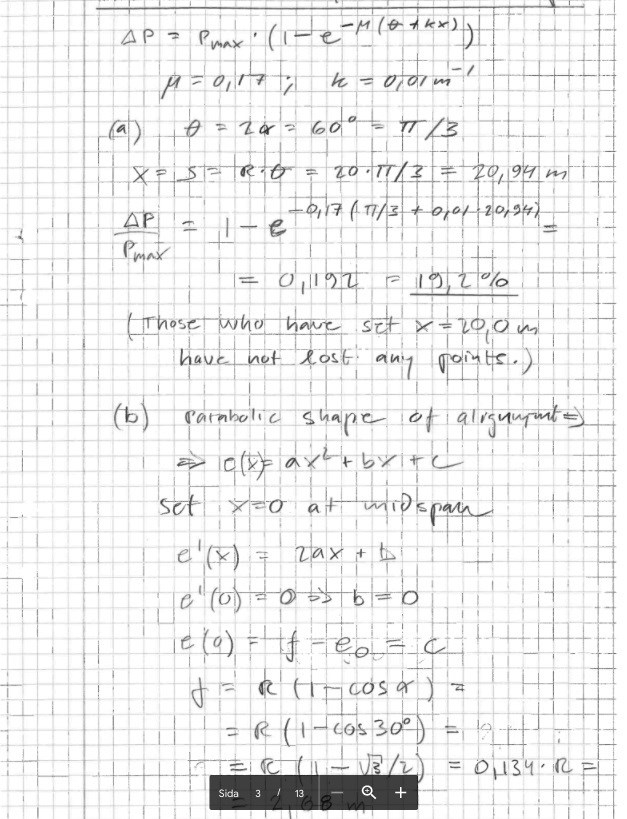 ΔP = Pmax · (1 − e^−μ(θ + kx))
μ = 0,17 ; k = 0,01 m^−1
(a) θ = 2α = 60° = π/3
x = s = R·θ = 20·π/3 = 20,94 m
ΔP/Pmax = 1 − e^−0,17(π/3 + 0,01·20,94) =
= 0,192 = 19,2%
(Those who have set x = 20,0 m
have not lost any points.)
(b) Parabolic shape of alignment ⇒
⇒ e(x) = ax² + bx + c
set x=0 at midspan
e'(x) = 2ax + b
e'(0) = 0 ⇒ b = 0
e(0) = f − e₀ = c
f = R(1 − cosα) =
= R(1 − cos30°) =
= R(1 − √3/2) = 0,134·R =
= 2,68 m
Sida 3 / 13 − +